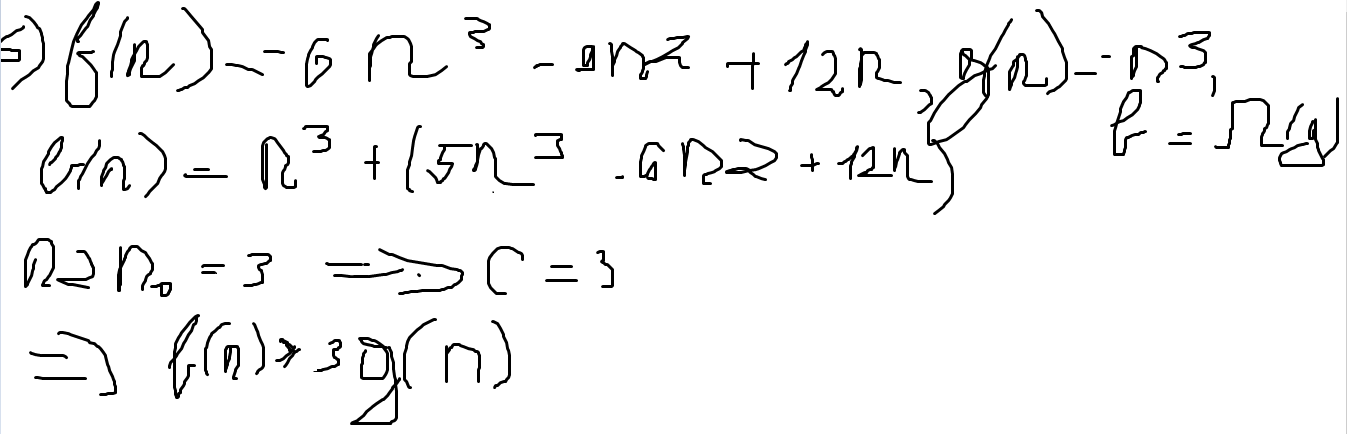 => f(n) = 6n^3 - 9n2 + 12n, g(n) = n^3, f = Ω(g)
f(n) = n^3 + (5n^3 - 6n2 + 12n)
n ≥ n₀ = 3 => C = 3
=> f(n) > 3g(n)